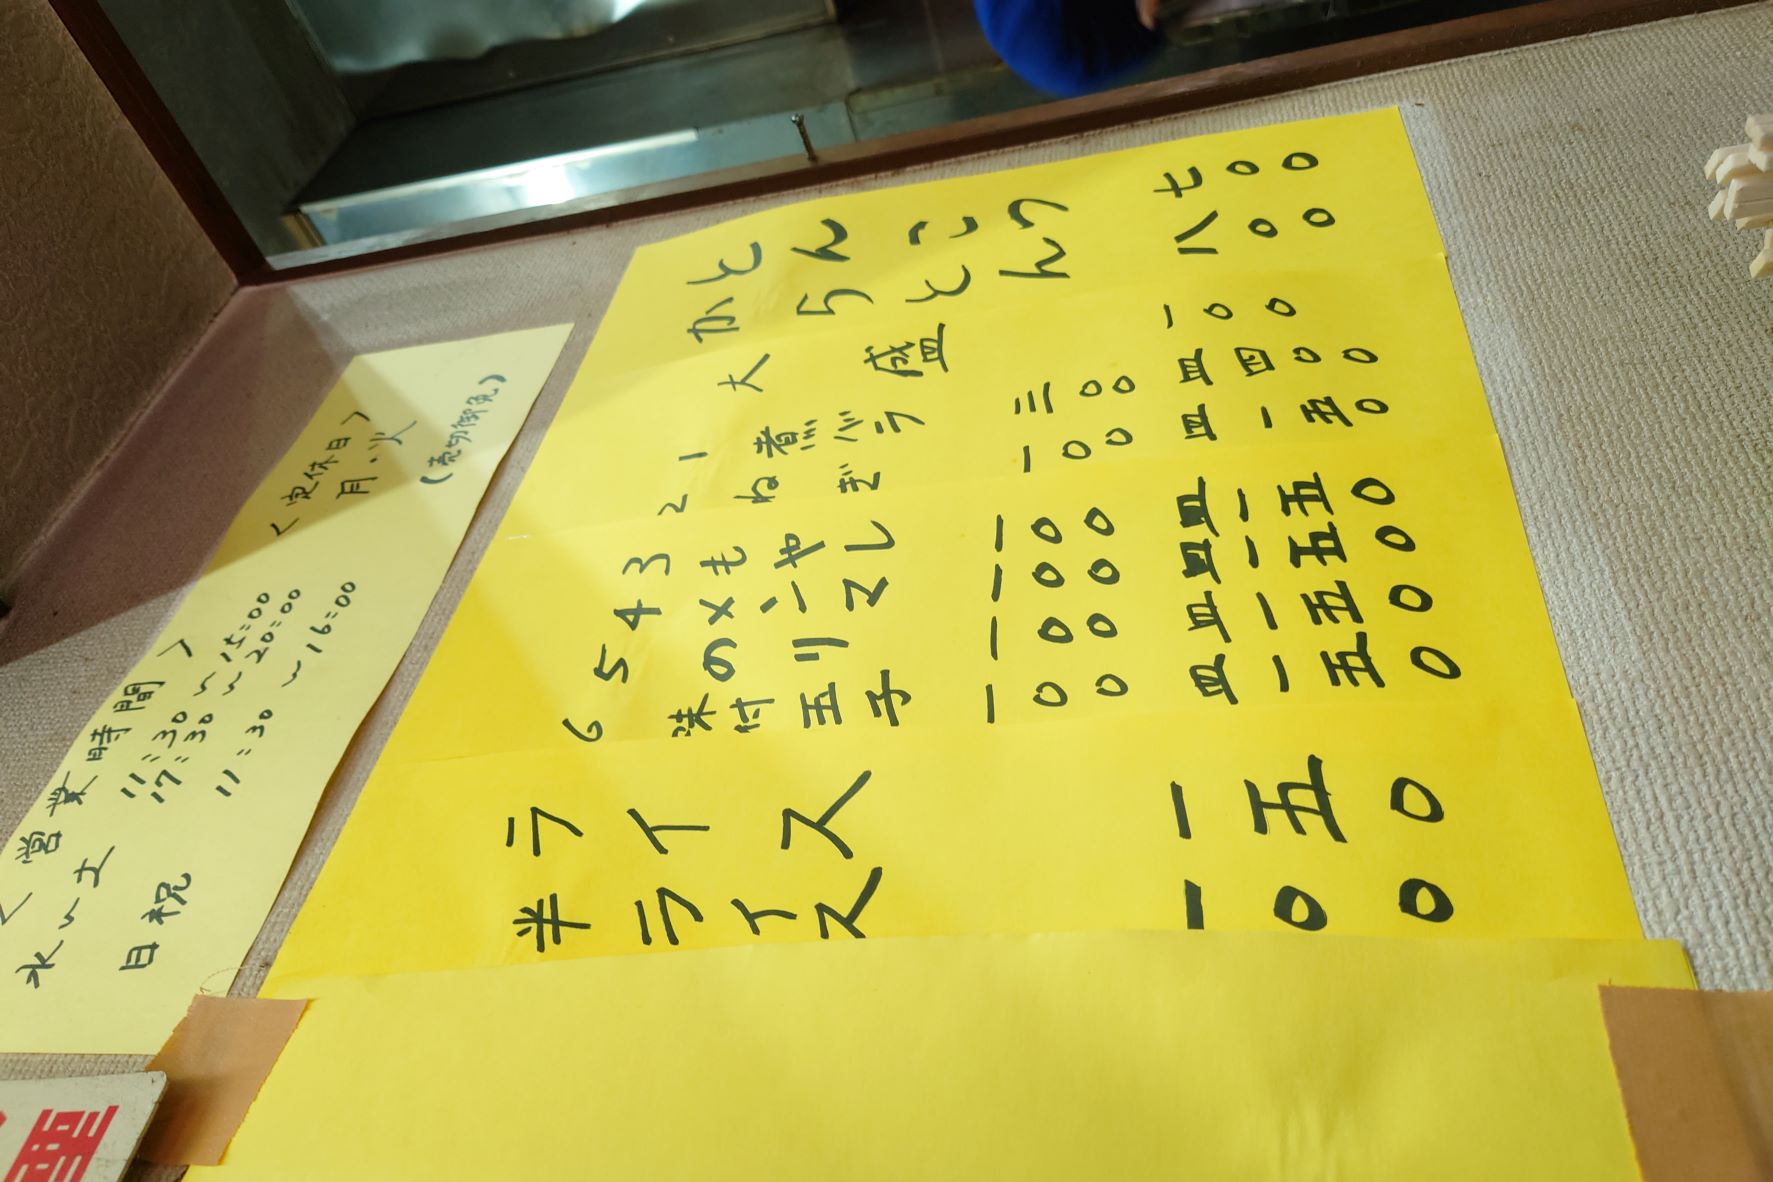 とんこつ 七〇〇
からとん 八〇〇
大盛 一〇〇
1 煮バラ 三〇〇 皿四〇〇
2 ねぎ 一〇〇 皿一五〇
3 もやし 一〇〇 皿一五〇
4 メンマ 一〇〇 皿一五〇
5 のり 一〇〇 皿一五〇
6 味付玉子 一〇〇 皿一五〇
ライス 一五〇
半ライス 一〇〇
〈営業時間〉 〈定休日〉
水〜土 11:30〜15:00 月・火
17:30〜20:00
日祝 11:30〜16:00 (売切御免)